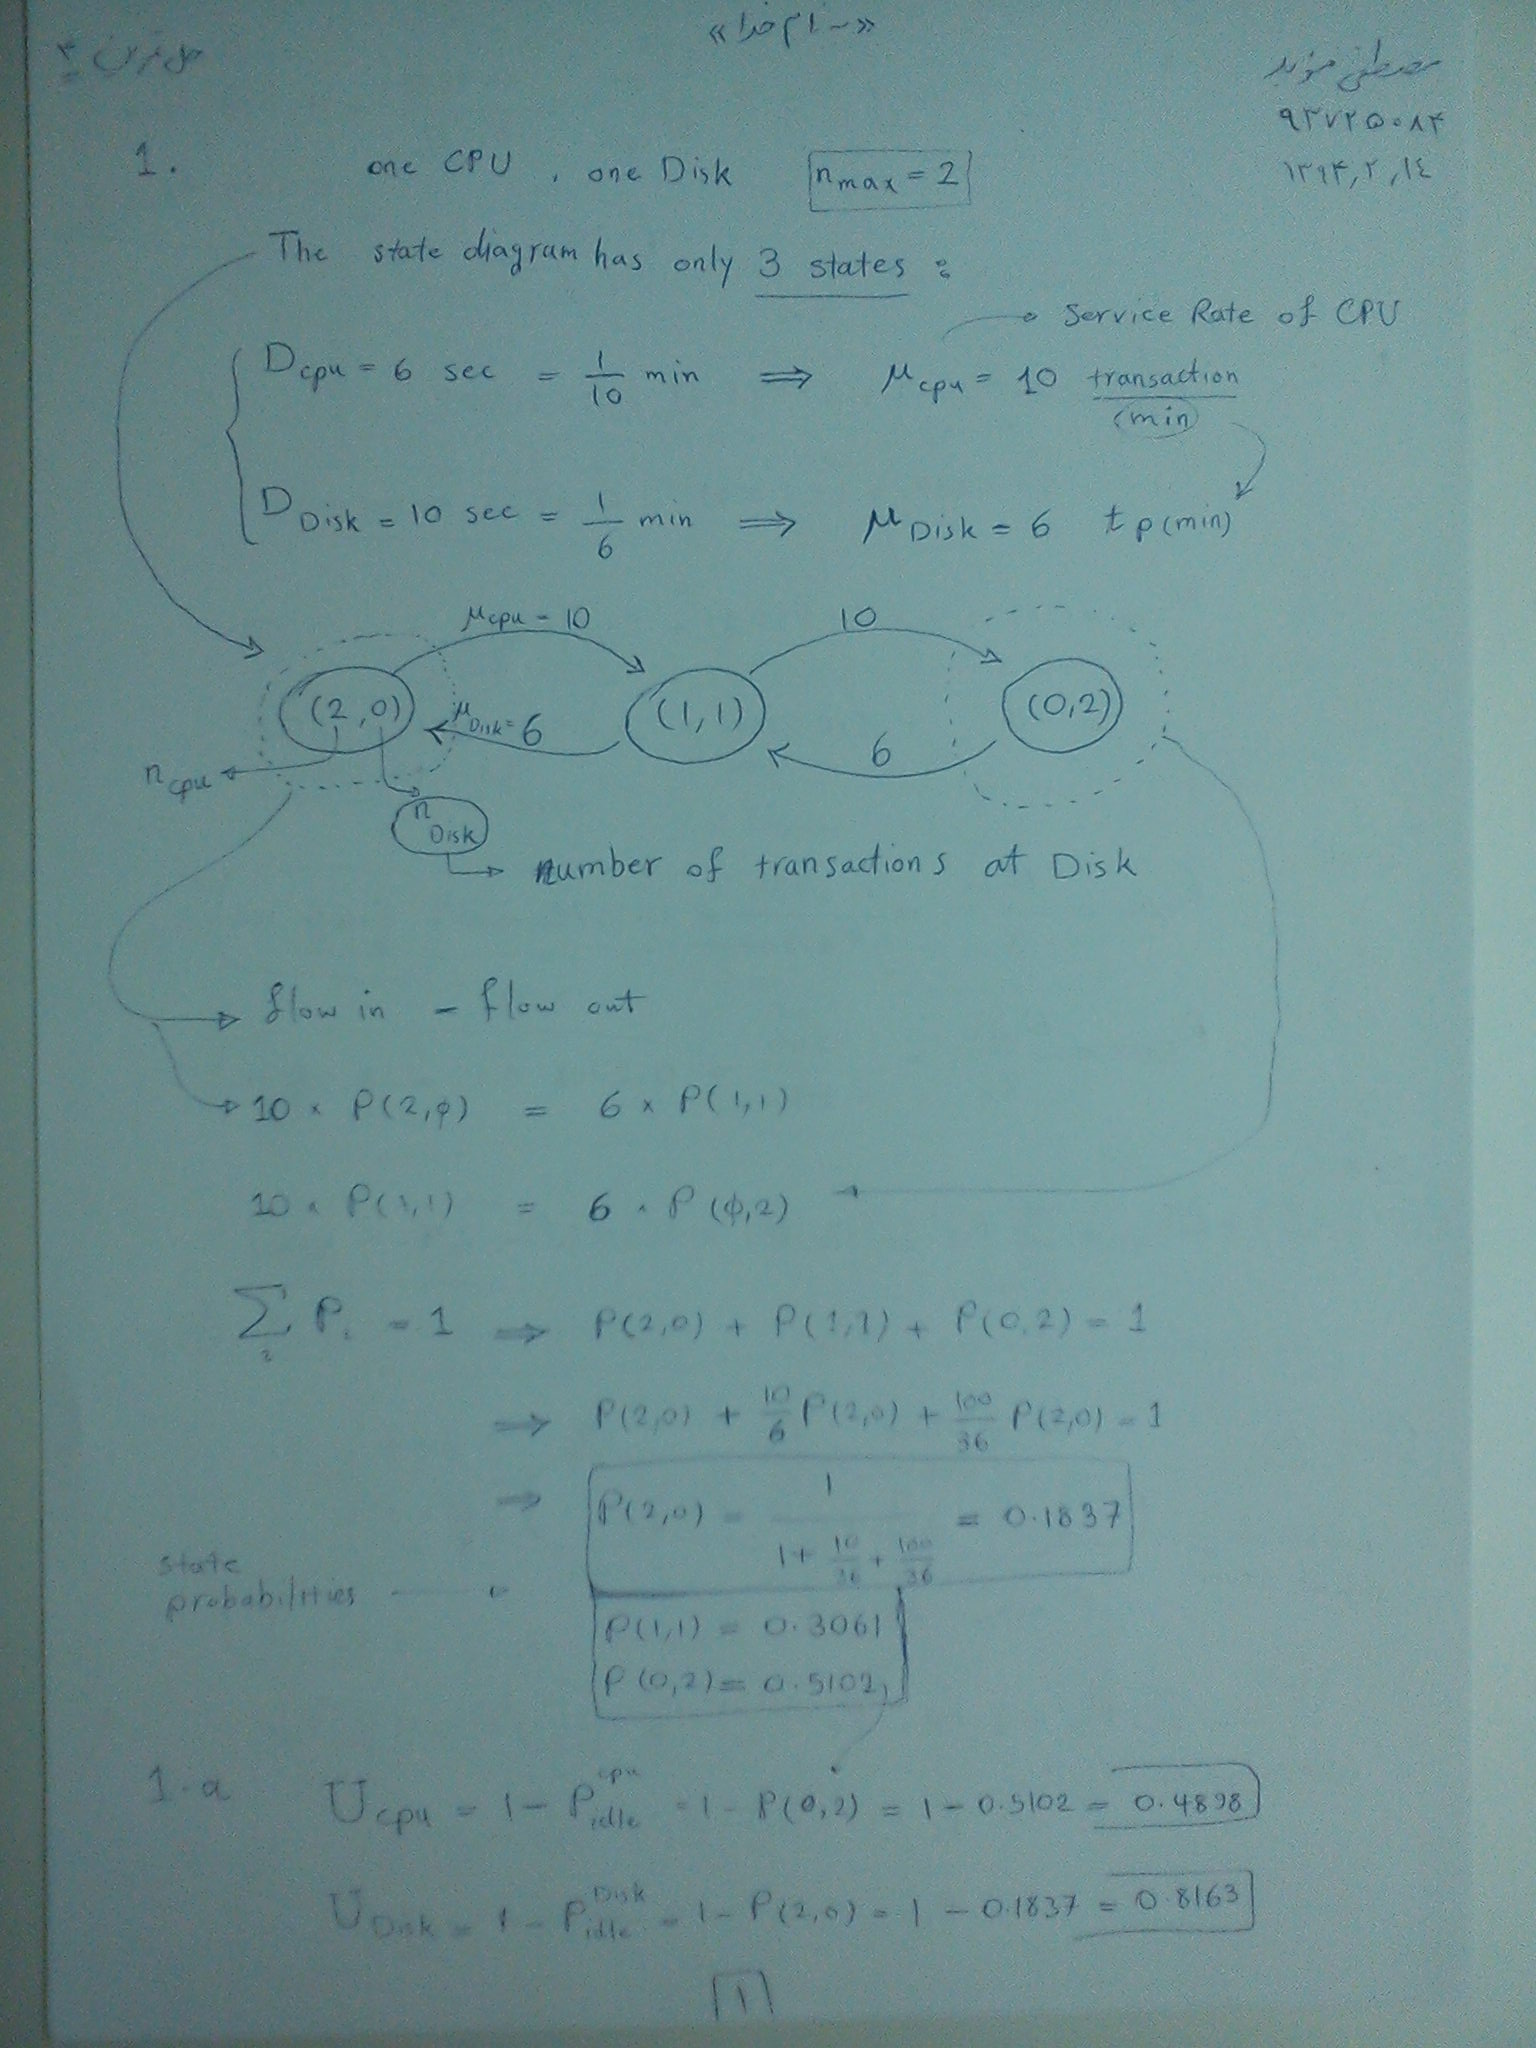 «بنام خدا»
حل تمرین ۴
مصطفی مؤید
۹۳۷۲۵۰۸۴
۱۳۹۴,۲,۱٤
1. one CPU , one Disk n max = 2
The state diagram has only 3 states :
Service Rate of CPU
D cpu = 6 sec = 1/10 min ⇒ μ cpu = 10 transaction/min
D Disk = 10 sec = 1/6 min ⇒ μ Disk = 6 tp(min)
μcpu = 10 10
(2,0) μDisk = 6 (1,1) 6 (0,2)
n cpu
n Disk
number of transactions at Disk
flow in = flow out
10 × P(2,φ) = 6 × P(1,1)
10 × P(1,1) = 6 × P(φ,2)
∑ Pi = 1 ⇒ P(2,0) + P(1,1) + P(0,2) = 1
⇒ P(2,0) + 10/6 P(2,0) + 100/36 P(2,0) = 1
⇒ P(2,0) = 1/(1 + 10/36 + 100/36) = 0.1837
state probabilities
P(1,1) = 0.3061
P(0,2) = 0.5102
1.a U cpu = 1 - P idle cpu = 1 - P(0,2) = 1 - 0.5102 = 0.4898
U Disk = 1 - P idle Disk = 1 - P(2,0) = 1 - 0.1837 = 0.8163
1